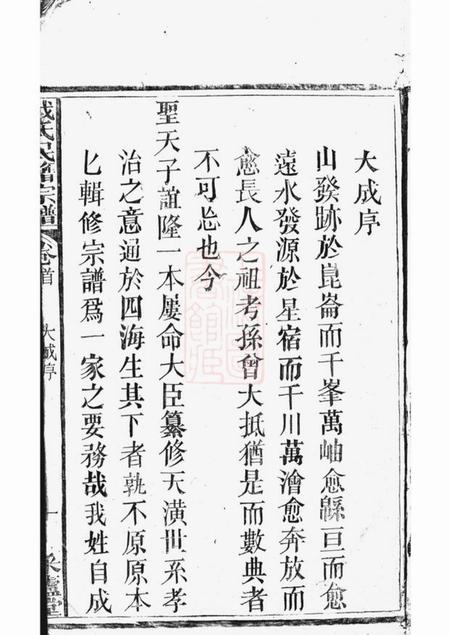 大成序
山發跡於崑崙而千峯萬岫愈緜亘而愈
遠水發源於星宿而千川萬澮愈奔放而
愈長人之祖考孫曾大抵猶是而數典者
不可忘也今
聖天子誼隆一本屢命大臣纂修天潢世系孝
治之意通於四海生其下者孰不原原本
匕輯修宗譜爲一家之要務哉我姓自成
氏宗譜
卷首
大成序
一
堂